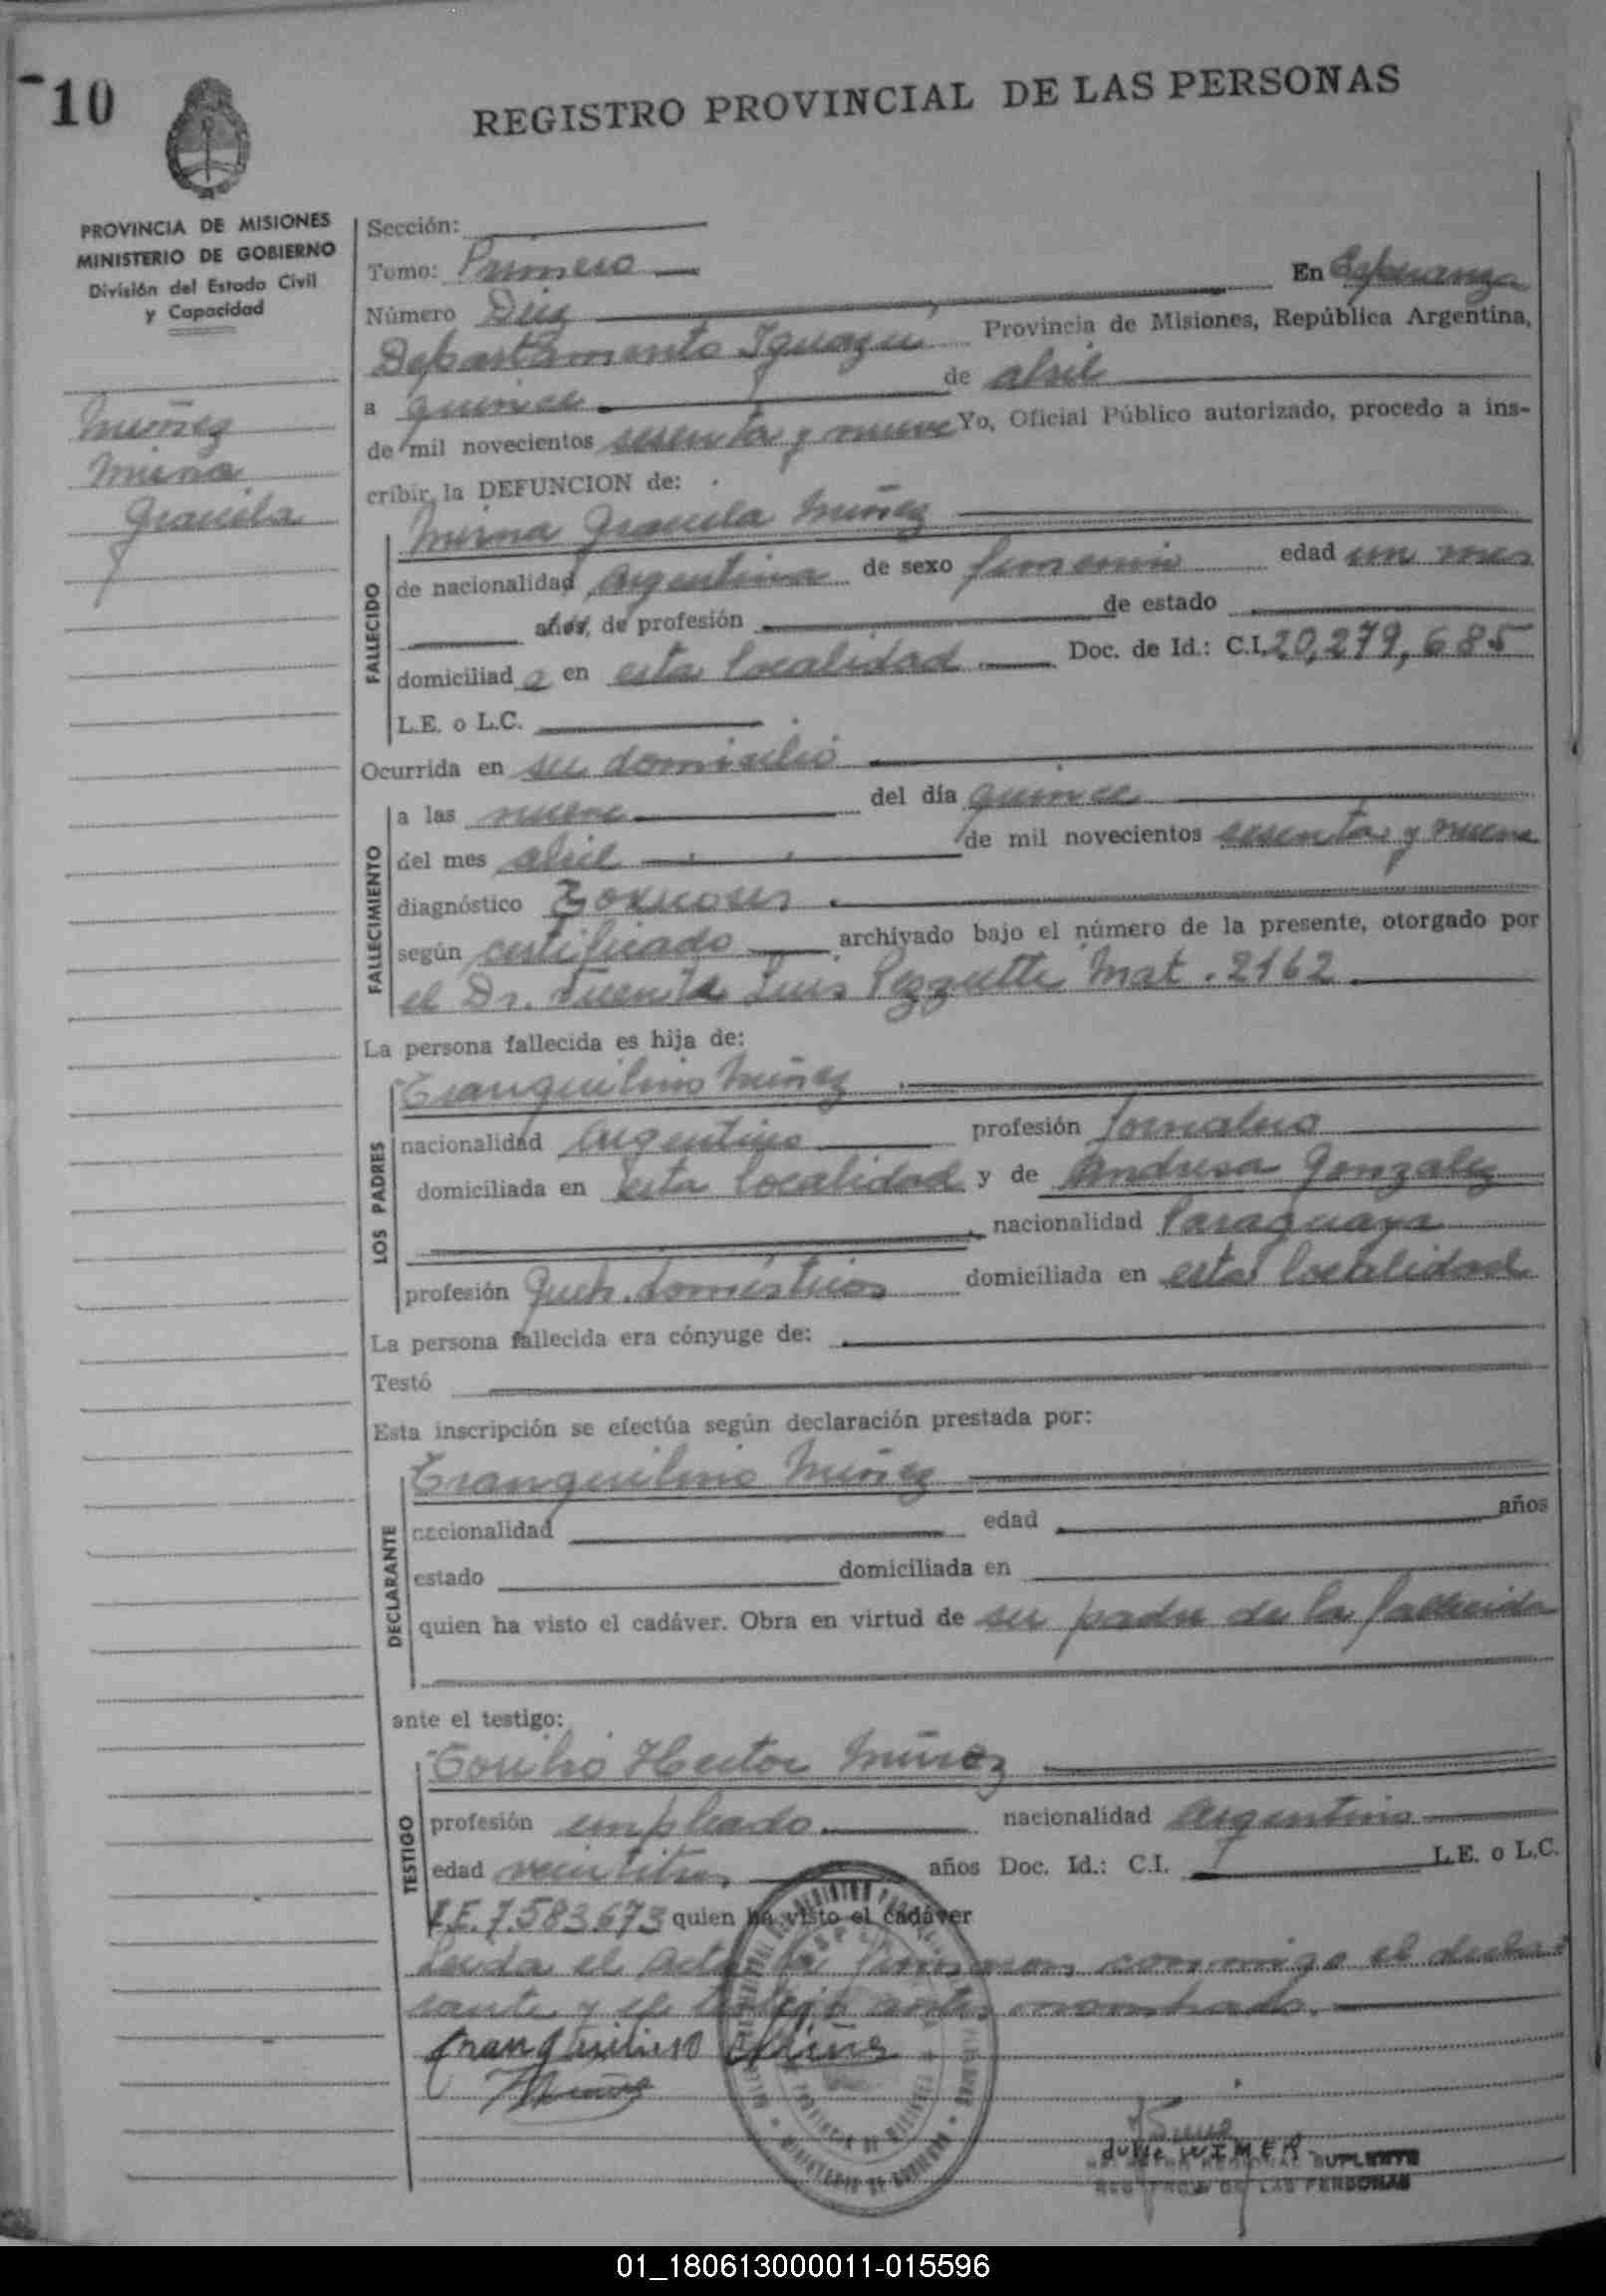 10
REGISTRO PROVINCIAL DE LAS PERSONAS
PROVINCIA DE MISIONES
MINISTERIO DE GOBIERNO
División del Estado Civil
y Capacidad
Nuñez
Mirna
Graciela
Sección:
Tomo: Primero
Número Diez En Esperanza
Departamento Iguazu Provincia de Misiones, República Argentina,
a quince de abril
de mil novecientos sesenta y nueve Yo, Oficial Público autorizado, procedo a ins-
cribir la DEFUNCION de:
Mirna Graciela Nuñez
FALLECIDO
de nacionalidad Argentina de sexo femenino edad un mes
años, de profesión de estado
domiciliad a en esta localidad Doc. de Id.: C.I. 20,279,685
L.E. o L.C.
Ocurrida en su domicilio
FALLECIMIENTO
a las nueve del día quince
del mes abril de mil novecientos sesenta y nueve
diagnóstico Toxicosis
según certificado archivado bajo el número de la presente, otorgado por
el Dr. Luis Mat. 2162
La persona fallecida es hija de:
LOS PADRES
Tranquilino Nuñez
nacionalidad Argentino profesión Jornalero
domiciliada en esta localidad y de Andresa Gonzalez
nacionalidad Paraguaya
profesión Queh. domésticos domiciliada en esta localidad
La persona fallecida era cónyuge de:
Testó
Esta inscripción se efectúa según declaración prestada por:
DECLARANTE
Tranquilino Nuñez
nacionalidad edad años
estado domiciliada en
quien ha visto el cadáver. Obra en virtud de ser padre de la fallecida
ante el testigo:
TESTIGO
Hector Nuñez
profesión empleado nacionalidad Argentino
edad veintitres años Doc. Id.: C.I. L.E. o L.C.
L.E. 7.583.673 quien ha visto el cadáver
Leida el acta la firmaron conmigo el decla-
rante y el testigo antes nombrado.
Tranquilino
SUPLENTE
REGISTRO DE LAS PERSONAS
01_180613000011-015596